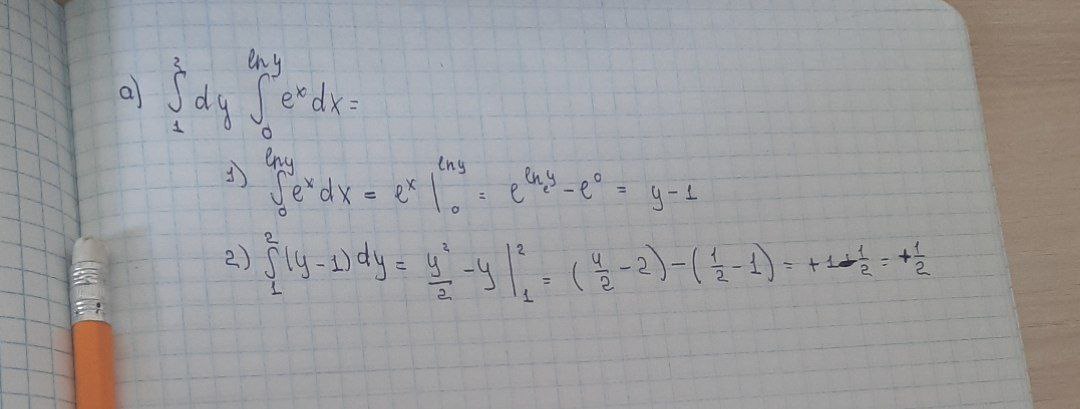 a) ∫₁² dy ∫₀^{ln y} eˣ dx =
1) ∫₀^{ln y} eˣ dx = eˣ |₀^{ln y} = e^{ln y} - e⁰ = y - 1
2) ∫₁² (y - 1) dy = y²/2 - y |₁² = (4/2 - 2) - (1/2 - 1) = +1 - 1/2 = +1/2